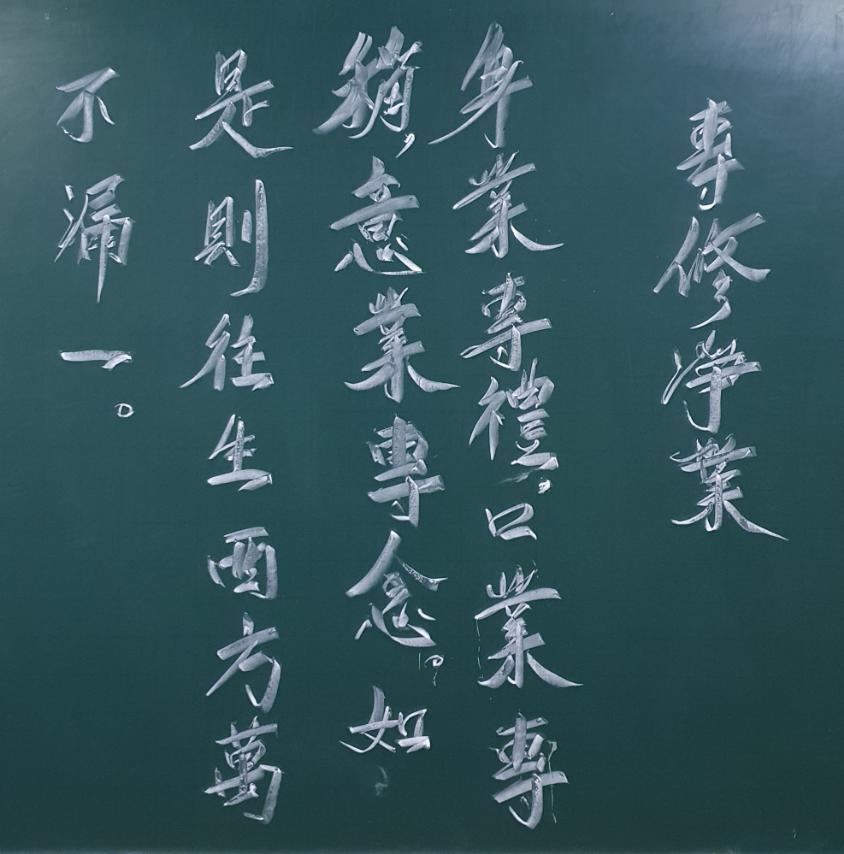 專修淨業
身業專禮，口業專
稱，意業專念。如
是則往生西方萬
不漏一。